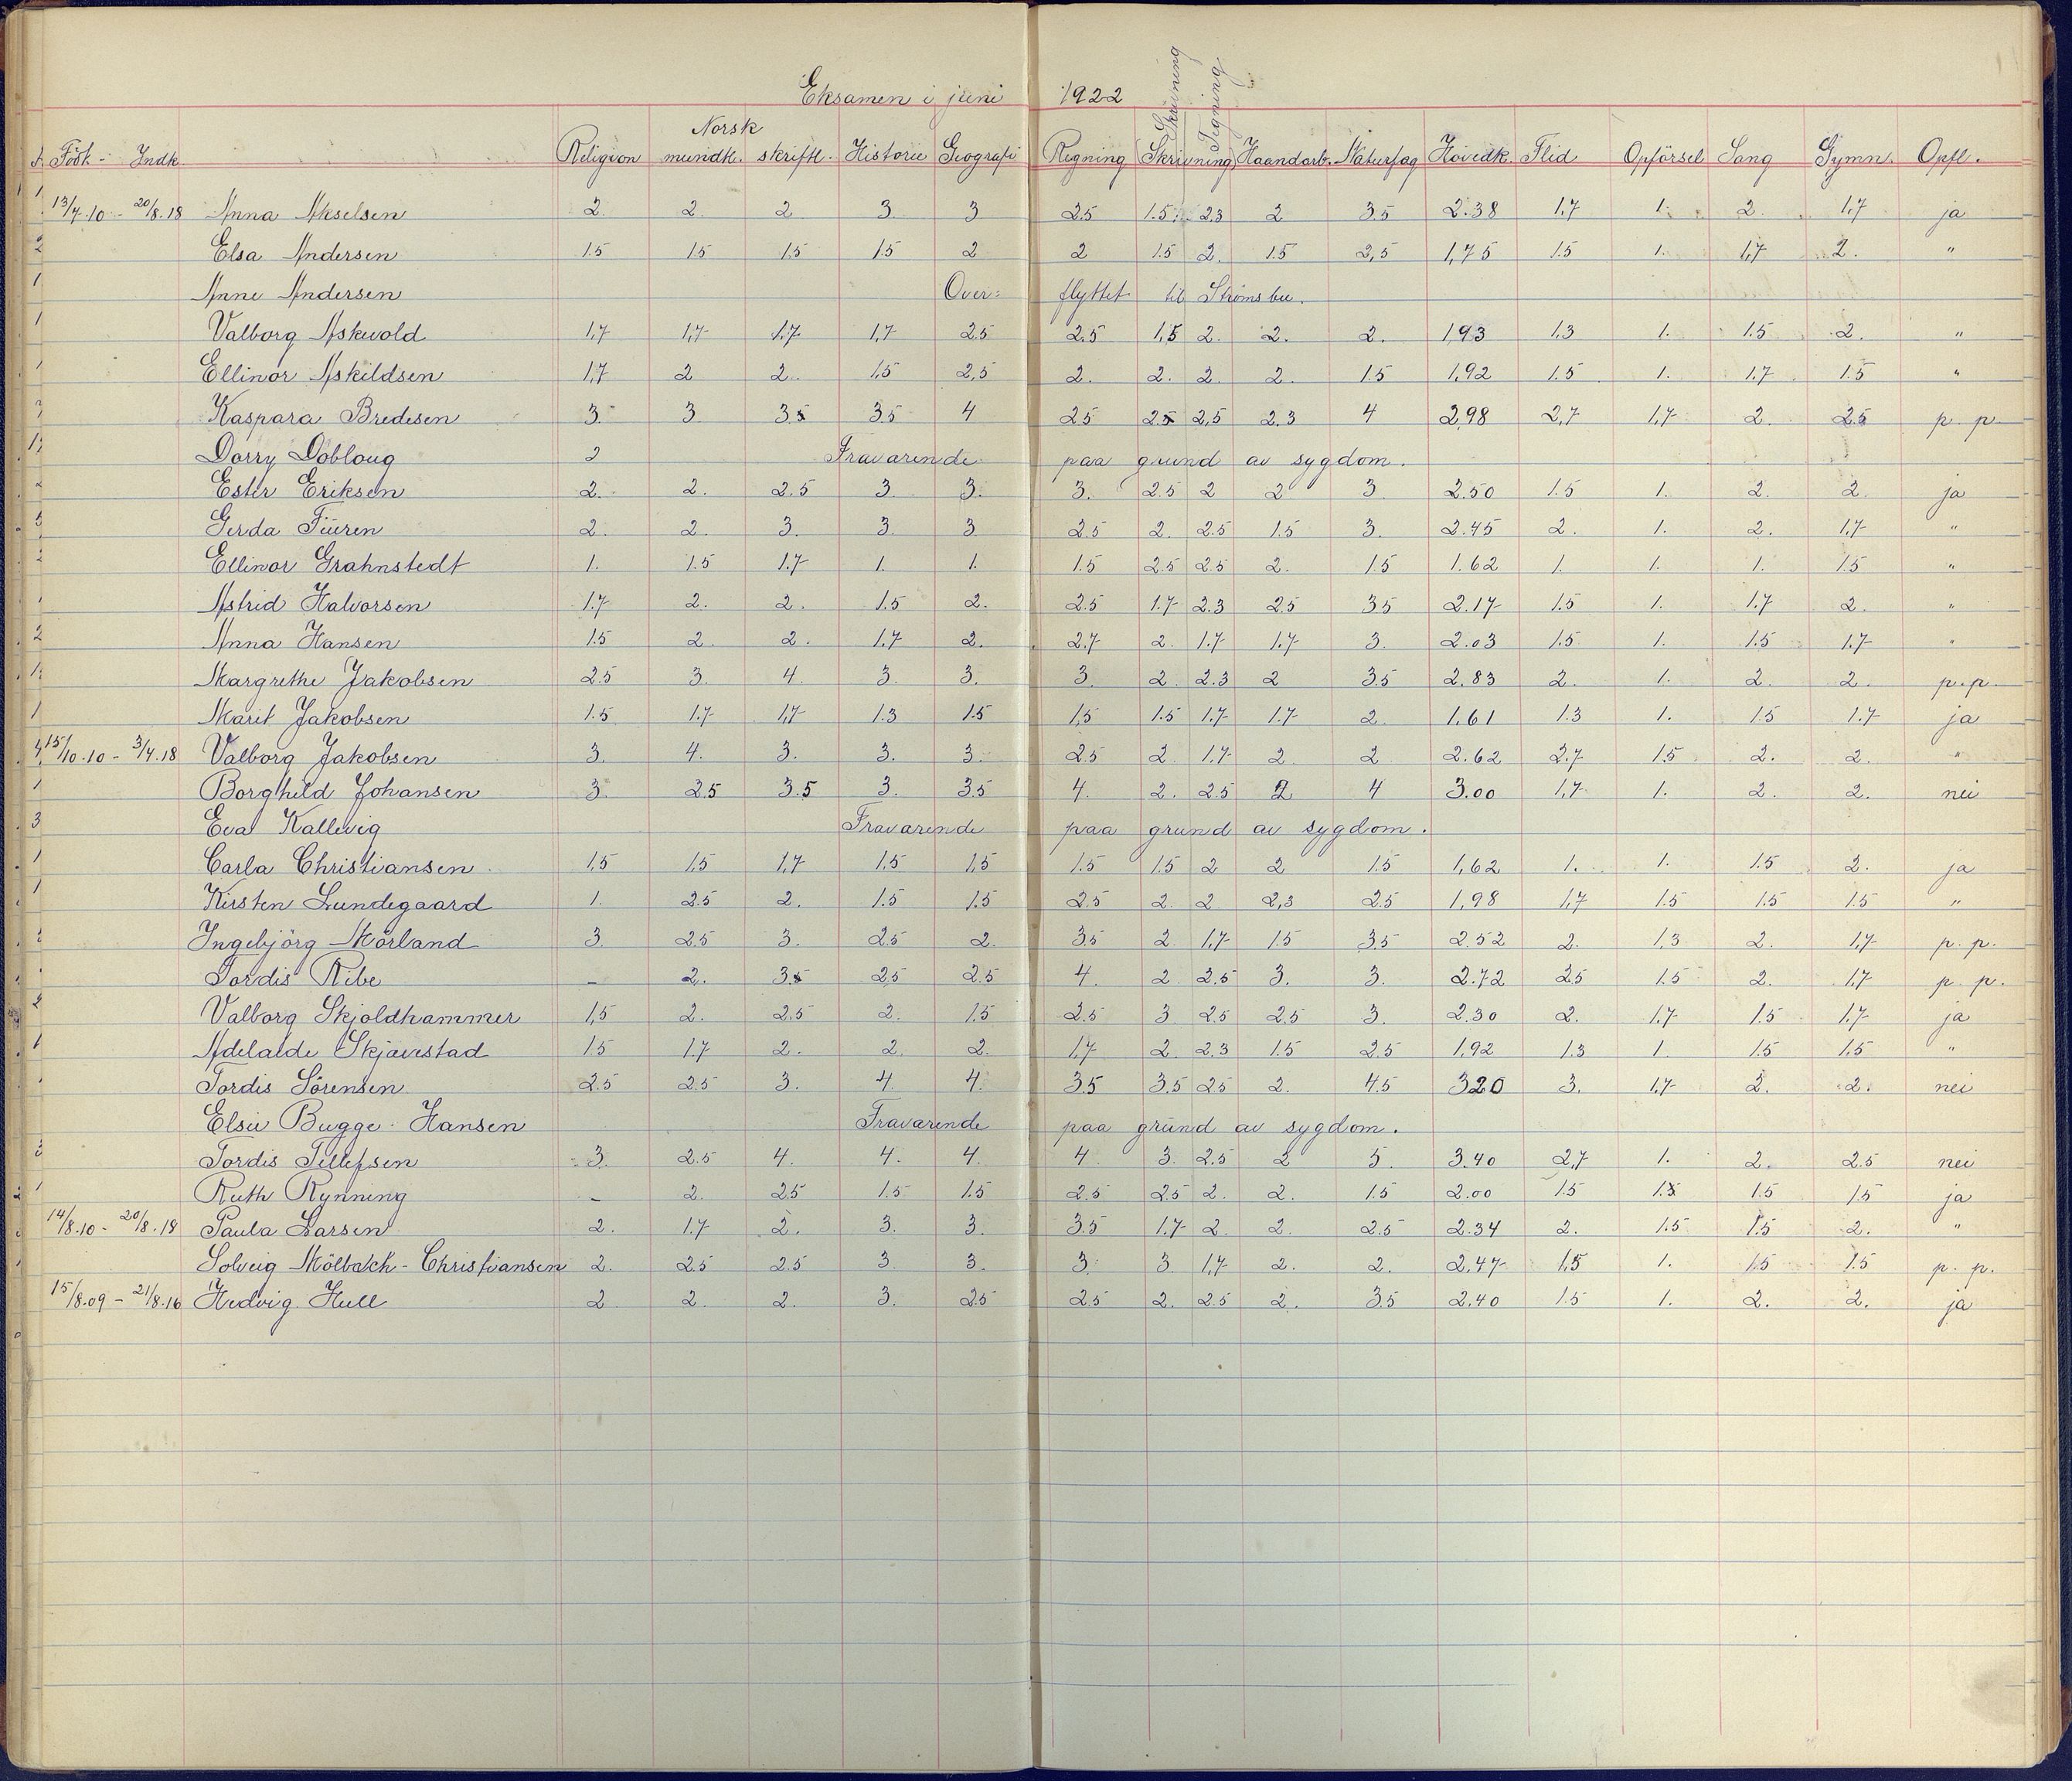 Eksamen i juni 1922
Skrivning Tegning
Norsk
Född - Indk. Religion mundtl. skriftl. Historie Geografi Regning Skrivning Haandarb. Naturfag Hovedk. Flid Opförsel Sang Gymn. Opfl.
13/4.10 - 20/8.18 Anna Akselsen 2 2. 2 3 3 2.5 1.5 2.3 2 3.5 2.38 1,7 1. 2. 1,7 ja
Elsa Andersen 1.5 1.5 1.5 1.5 2 2 1.5 2. 1.5 2,5 1,75 1.5 1. 1,7 2. "
Anne Andersen Over: flyttet til Strömsbu.
Valborg Askevold 1,7 1,7 1.7 1,7 2.5 2.5 1,5 2. 2. 2. 1,93 1,3 1. 1.5 2. "
Ellinor Askildsen 1,7 2 2. 1,5 2,5 2. 2. 2. 2. 1.5 1,92 1.5 1. 1.7 1.5 "
Kaspara Bredesen 3. 3 3.5 3.5 4 2.5 2.5 2,5 2.3 4 2,98 2,7 1,7 2. 2.5 p. p.
Dorry Dobloug 2 Fraværende paa grund av sygdom.
Ester Eriksen 2. 2. 2.5 3 3. 3. 2.5 2 2 3 2.50 1.5 1. 2. 2. ja
Gerda Füren 2. 2. 3. 3. 3 2.5 2. 2.5 1.5 3. 2.45 2. 1. 2. 1,7 "
Ellinor Grahnstedt 1. 1.5 1.7 1. 1. 1.5 2.5 2.5 2. 1.5 1.62 1. 1. 1. 1.5 "
Astrid Halvorsen 1.7 2. 2. 1.5 2. 2.5 1.7 2.3 2.5 3.5 2.17 1.5 1. 1.7 2. "
Anna Hansen 1.5 2. 2. 1.7 2. 2.7 2. 1.7 1.7 3. 2.03 1.5 1. 1.5 1,7 "
Margrethe Jakobsen 2.5 3. 4. 3. 3. 3. 2. 2.3 2 3.5 2.83 2. 1. 2. 2. p.p.
Marit Jakobsen 1.5 1.7 1,7 1.3 1.5 1,5 1.5 1.7 1.7 2. 1,61 1.3 1. 1.5 1.7 ja
15/10.10 - 3/4.18 Valborg Jakobsen 3. 4. 3. 3. 3. 2.5 2 1.7 2 2 2.62 2.7 1.5 2. 2. "
Borghild Johansen 3. 2.5 3.5 3. 3.5 4. 2. 2.5 2 4 3.00 1,7 1. 2. 2. nei
Eva Kallevig Fraværende paa grund av sygdom.
Carla Christiansen 1,5 1,5 1,7 1,5 1,5 1.5 1.5 2 2 1.5 1,62 1. 1. 1.5 2. ja
Kirsten Lundegaard 1. 2.5 2. 1.5 1.5 2.5 2. 2 2,3 2.5 1,98 1,7 1.5 1.5 1.5 "
Ingebjörg Mörland 3. 2.5 3. 2.5 2. 3.5 2. 1,7 1.5 3.5 2.52 2. 1,3 2. 1,7 p. p.
Tordis Ribe - 2. 3.5 2.5 2.5 4. 2 2.5 3. 3. 2.72 2.5 1.5 2. 1.7 p. p.
Valborg Skjoldhammer 1,5 2. 2.5 2. 1.5 2.5 3 2.5 2.5 3. 2.30 2. 1.7 1.5 1.7 ja
Adelaide Skjævestad 1.5 1.7 2. 2. 2. 1,7 2. 2.3 1.5 2.5 1,92 1.3 1. 1.5 1,5 "
Tordis Sörensen 2.5 2.5 3. 4. 4. 3.5 3.5 2.5 2. 4.5 3.20 3. 1,7 2. 2. nei
Elsie Bugge-Hansen Fraværende paa grund av sygdom.
Tordis Tellefsen 3. 2.5 4. 4. 4. 4 3. 2.5 2 5. 3.40 2,7 1. 2. 2.5 nei
Ruth Rynning - 2. 2.5 1.5 1.5 2.5 2.5 2. 2. 1.5 2.00 1.5 1.5 1.5 1.5 ja
14/8.10 - 20/8.18 Paula Larsen 2. 1.7 2. 3. 3. 3.5 1.7 2. 2. 2.5 2.34 2. 1.5 1.5 2. "
Solveig Mölbach-Christiansen 2. 2.5 2.5 3 3. 3. 3 1,7 2. 2. 2.47 1,5 1. 1.5 1.5 p. p.
15/8.09 - 21/8.16 Hedvig Hull 2 2. 2. 3. 2.5 2.5 2. 2.5 2. 3.5 2.40 1.5 1. 2. 2. ja